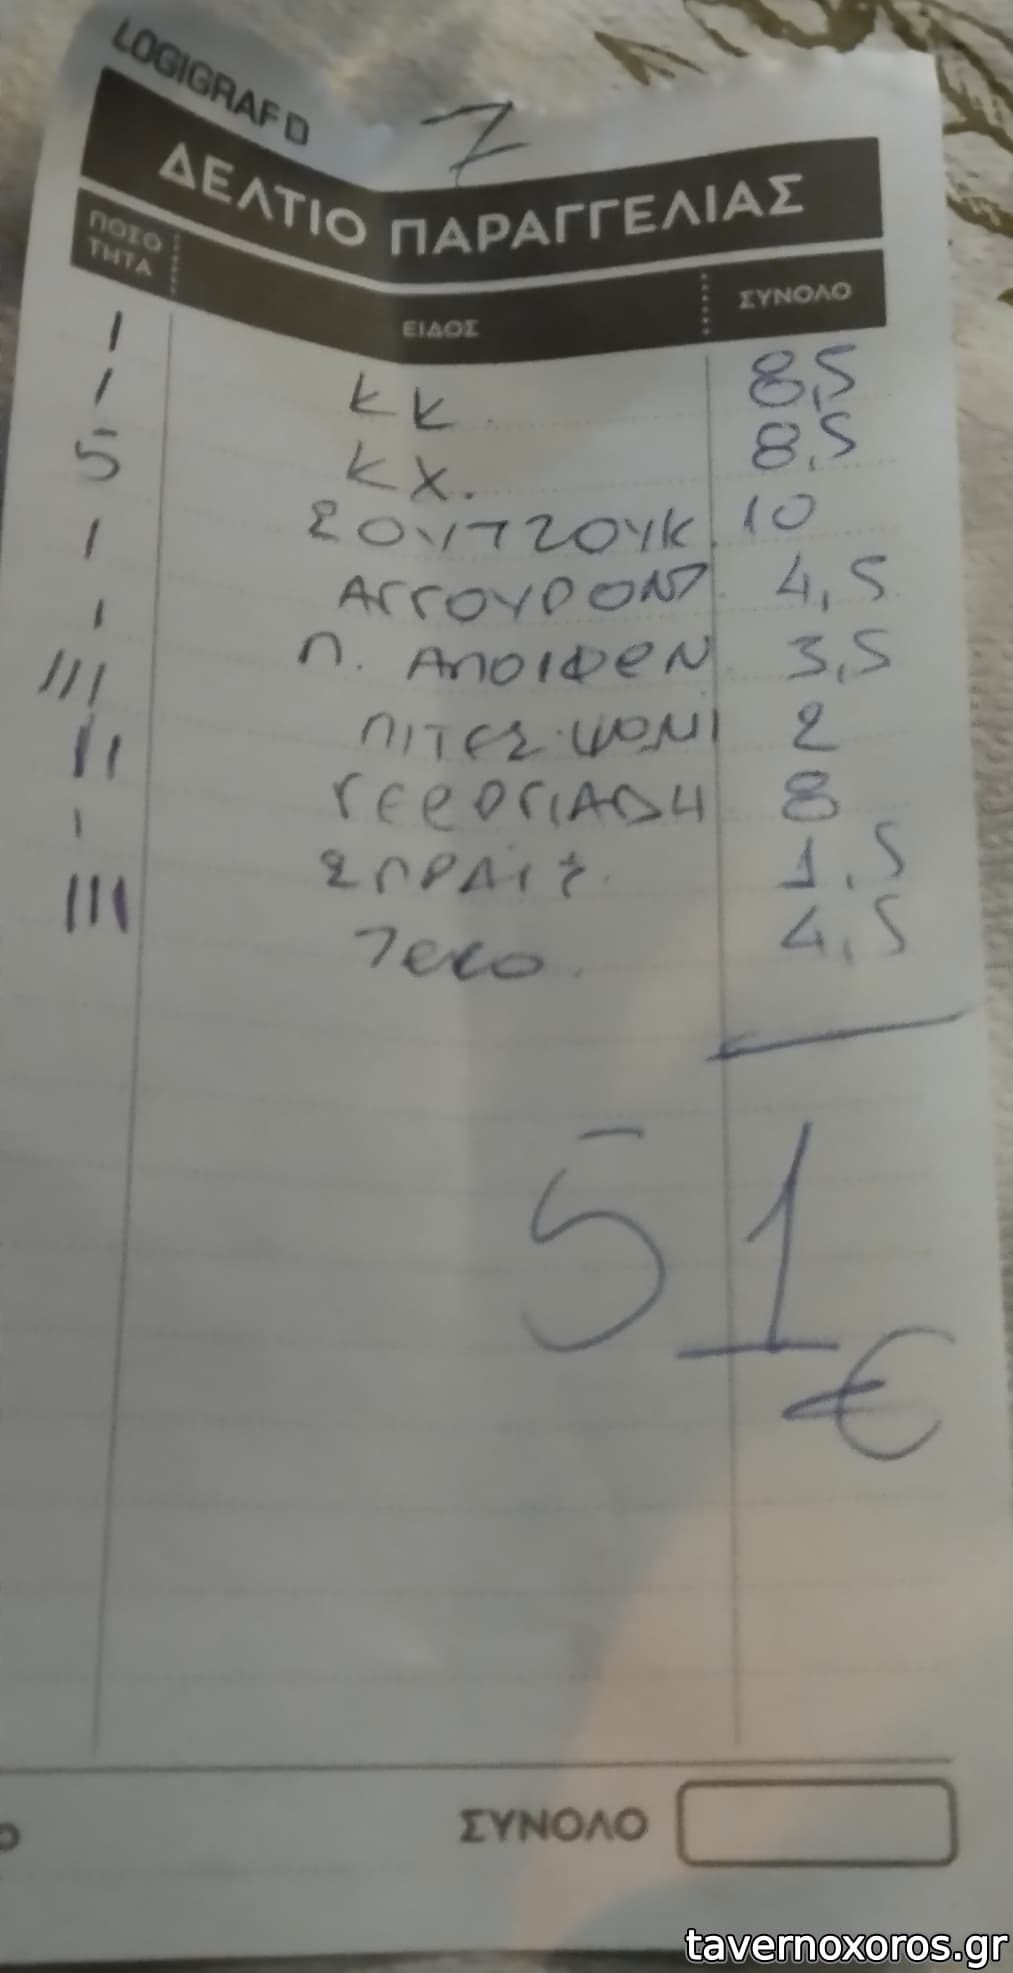 LOGIGRAF D
7
ΔΕΛΤΙΟ ΠΑΡΑΓΓΕΛΙΑΣ
ΠΟΣΟ
ΤΗΤΑ ΕΙΔΟΣ ΣΥΝΟΛΟ
1 ΚΚ. 8,5
1 ΚΧ. 8,5
5 ΣΟΥΤΖΟΥΚ. 10
1 ΑΓΓΟΥΡΟΝΤ. 4,5
1 Π. ΑΠΟΙΦΕΝ 3,5
III ΠΙΤΕΣ·ΨΩΜΙ 2
II ΓΕΡΟΓΙΑΔΗ 8
1 ΣΠΡΑΙΤ. 1,5
III 4,5
51
€
ΣΥΝΟΛΟ
tavernoxoros.gr